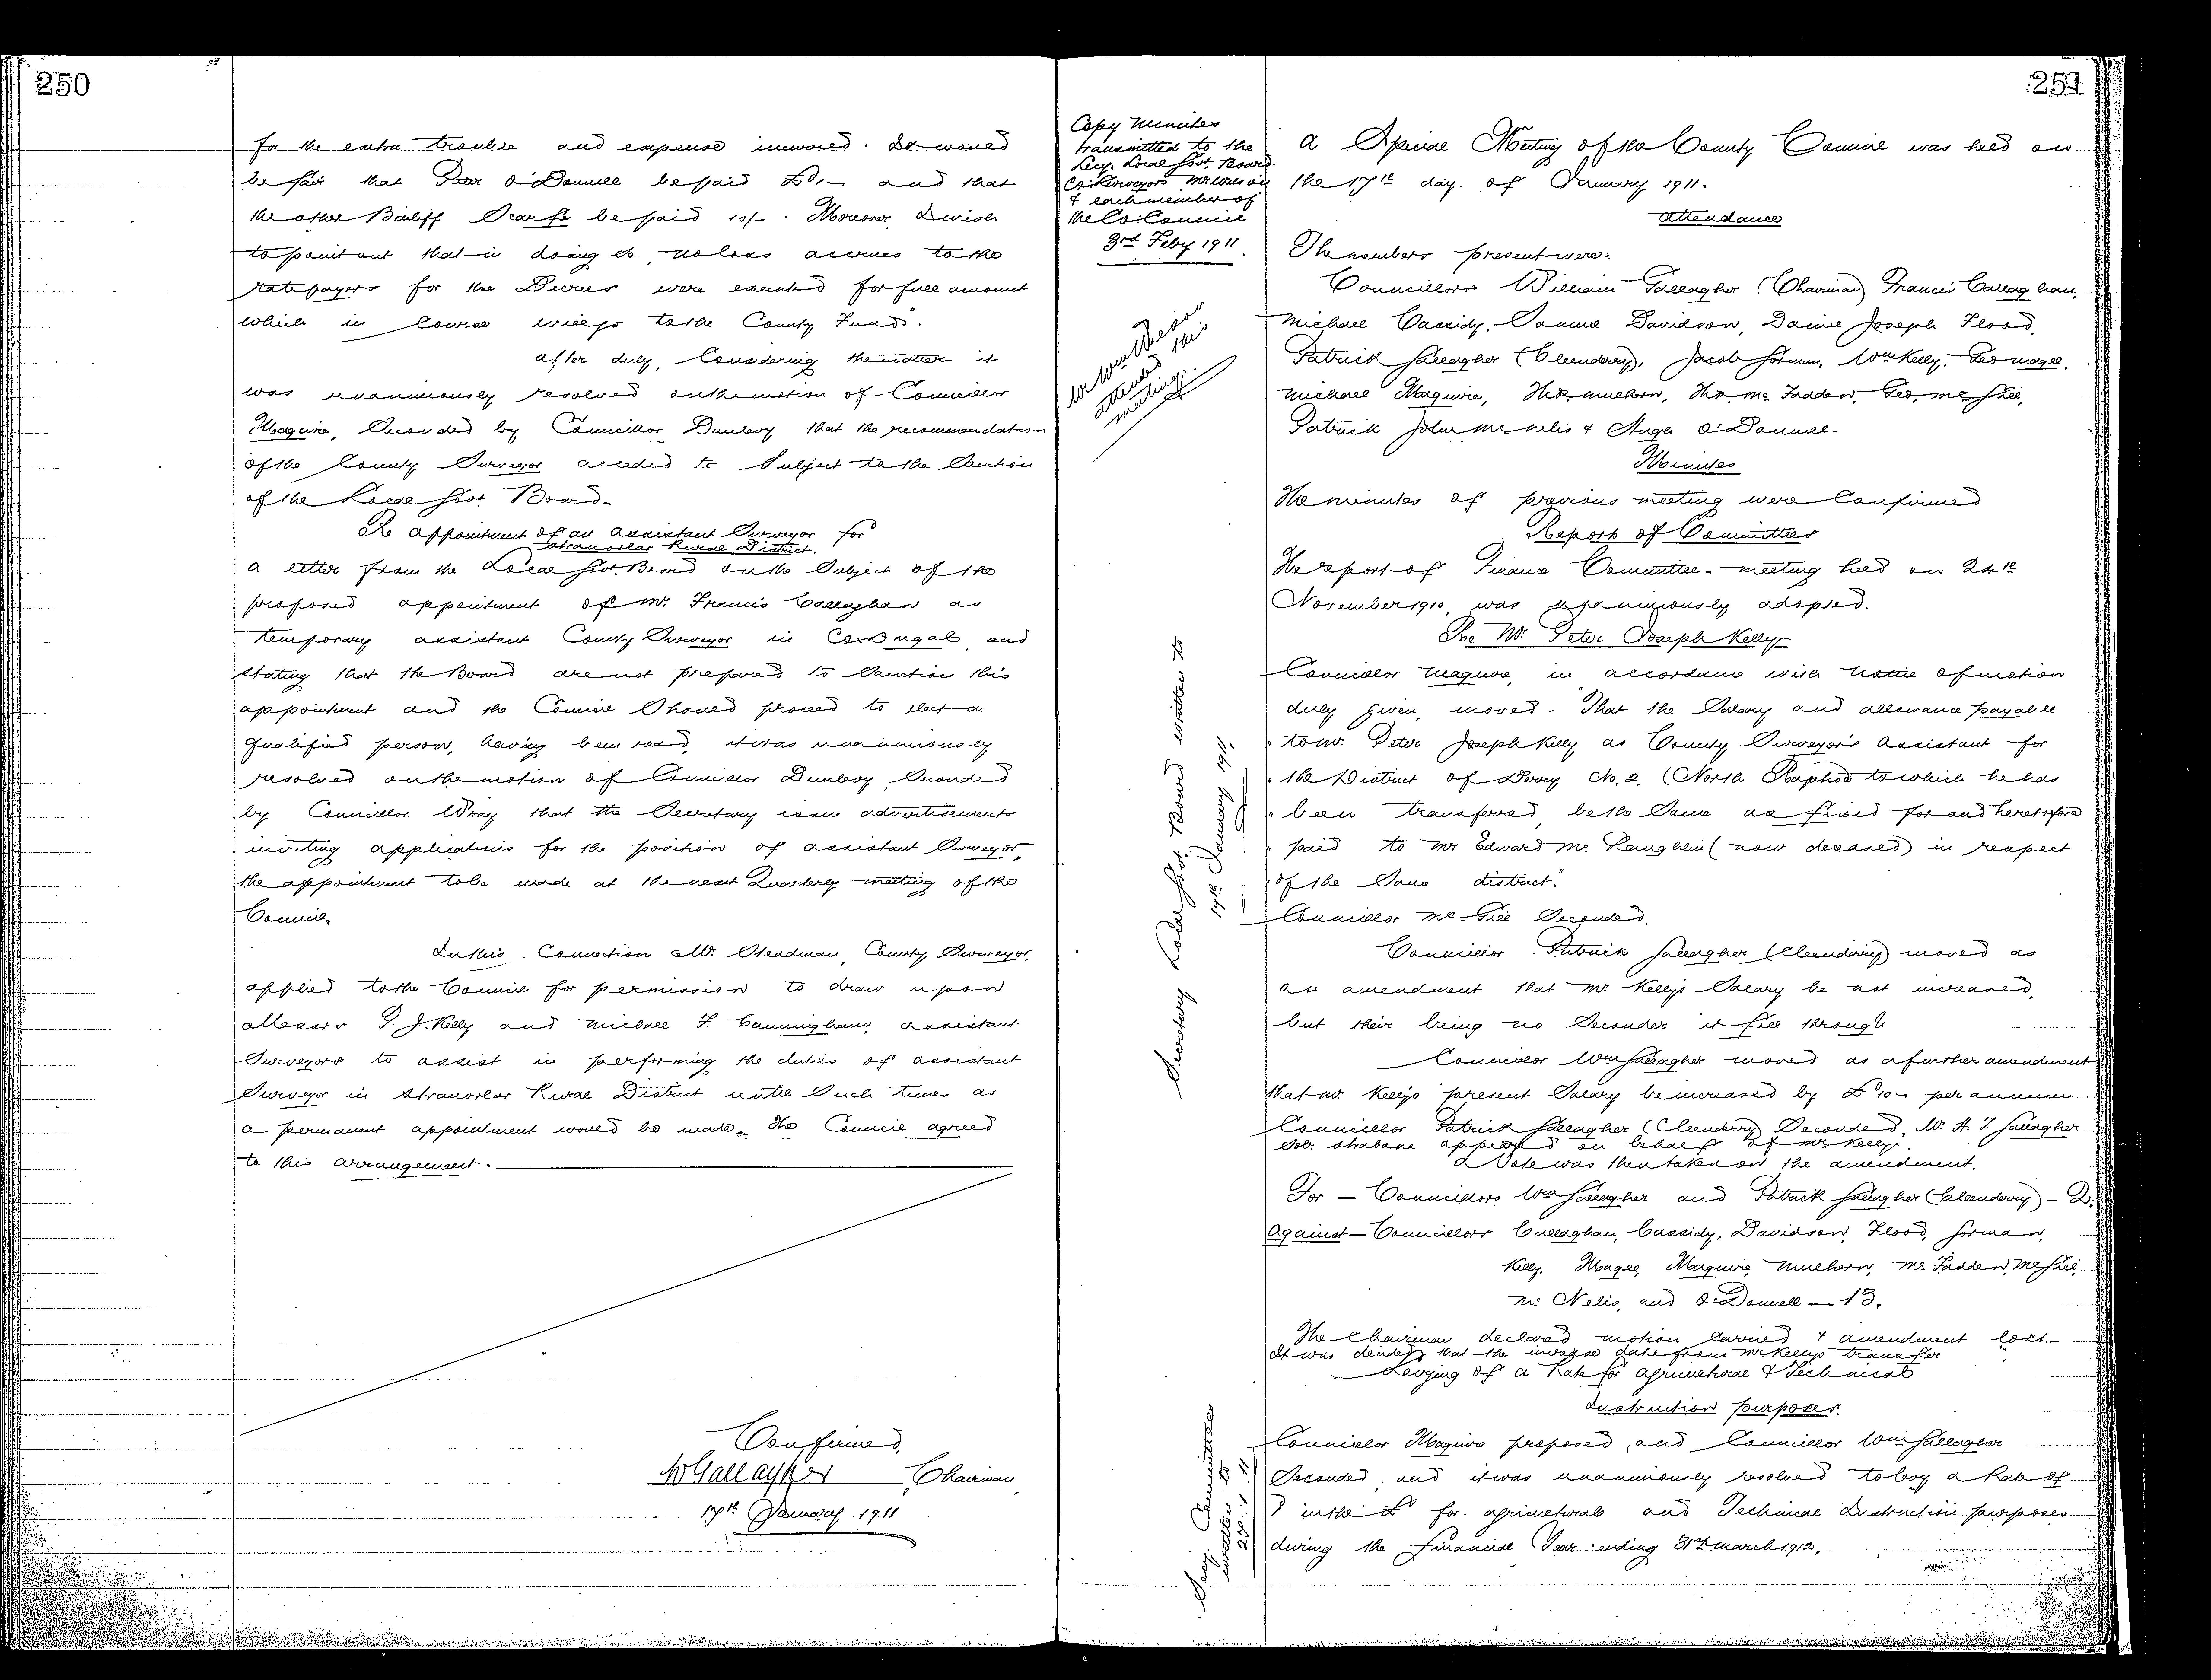 250
for the extra trouble and expense incurred. It would
be fair that Peter O'Donnell be paid and that
the other Bailiff Scarfe be paid 10/-. Moreover I wish
to point out that in doing so, no loss accrues to the
ratepayers for the Decrees were executed for full amount
which in course to the County Fund".
after duly, Considering the matter it
was unanimously resolved on the motion of Councillor
Maguire, Seconded by Councillor Dunlevy that the recommendation
of the County Surveyor acceded to Subject to the Sanction
of the Local Govt Board.
Re appointment of an assistant Surveyor for
Stranorlar Rural District.
a letter from the Local Govt. Board on the Subject of the
proposed appointment of Mr. Francis Callaghan as
temporary assistant County Surveyor in Co. Donegal, and
stating that the Board are not prepared to Sanction this
appointment and the Council Should proceed to elect a
qualified person, having been read, it was unanimously
resolved on the motion of Councillor Dunlevy Seconded
by Councillor Wray that the Secretary issue advertisements
inviting applications for the position of assistant Surveyor,
the appointment to be made at the next Quarterly meeting of the
Council.
In this Connection Mr. Steadman, County Surveyor,
applied to the Council for permission to draw upon
Messrs P. J. Kelly and Michael F. Cunningham, assistant
Surveyors to assist in performing the duties of assistant
Surveyor in Stranorlar Rural District until Such time as
a permanent appointment would be made. The Council agreed
to this arrangement.
Confirmed,
W Gallagher Chairman
17th January 1911
251
Copy Minutes
transmitted to the
Secy. Local Govt. Board.
Co: Surveyors
& each member of
the Co. Council
3rd Feby 1911.
attended this
meeting.
A Special Meeting of the County Council was held on
the 17th day of January 1911.
Attendance
The members present were:
Councillors William Gallagher (Chairman) Francis Callaghan,
Michael Cassidy, Samuel Davidson, Daniel Joseph Flood,
Patrick Gallagher (Cleendary), Jacob Gorman, Wm Kelly, Geo Magee,
Michael Maguire, Thos. Mulhern, Thos. McFadden, Geo. McGhee,
Patrick John McNelis & Hugh O'Donnell.
Minutes
The minutes of previous meeting were Confirmed
Report of Committees
The report of Finance Committee meeting held on 24th
November 1910, was unanimously adopted.
Re Mr. Peter Joseph Kelly
Councillor Maguire, in accordance with notice of motion
duly given, moved - "That the Salary and allowance payable
"to Mr. Peter Joseph Kelly as County Surveyor's Assistant for
"the District of Derry No. 2, (North Raphoe to which he has
"been transferred, be the Same as fixed for and heretofore
"paid to Mr Edward McLaughlin (now deceased) in respect
"of the Same district."
Councillor McGhee Seconded.
Secretary Local Govt. Board written to
19th January 1911.
Councillor Patrick Gallagher (Cleendary) moved as
an amendment that Mr Kelly's Salary be not increased,
but their being no Seconder it fell through
Councillor Wm Gallagher moved as a further amendment
that Mr. Kelly's present Salary be increased by £10 - per annum
Councillor Patrick Gallagher (Cleendary) Seconded, Mr. H. T. Gallagher
Solr Strabane appeared on behalf of Mr Kelly.
A Vote was then taken on the amendment.
For - Councillors Wm Gallagher and Patrick Gallagher (Cleendary) - 2.
Against - Councillors Callaghan, Cassidy, Davidson, Flood, Gorman,
Kelly, Magee, Maguire, Mulhern, McFadden, McGhee,
McNelis, and O'Donnell - 13.
The Chairman declared motion Carried & amendment lost.
It was decided that the increase date from Mr Kelly's transfer
Levying of a Rate for Agricultural & Technical
Instruction purposes.
Councillor Maguire proposed, and Councillor Wm Gallagher
Seconded, and it was unanimously resolved to levy a Rate of
in the £ for agricultural and Technical Instruction purposes
during the Financial Year ending 31st March 1912.
Secy. Committee
written to